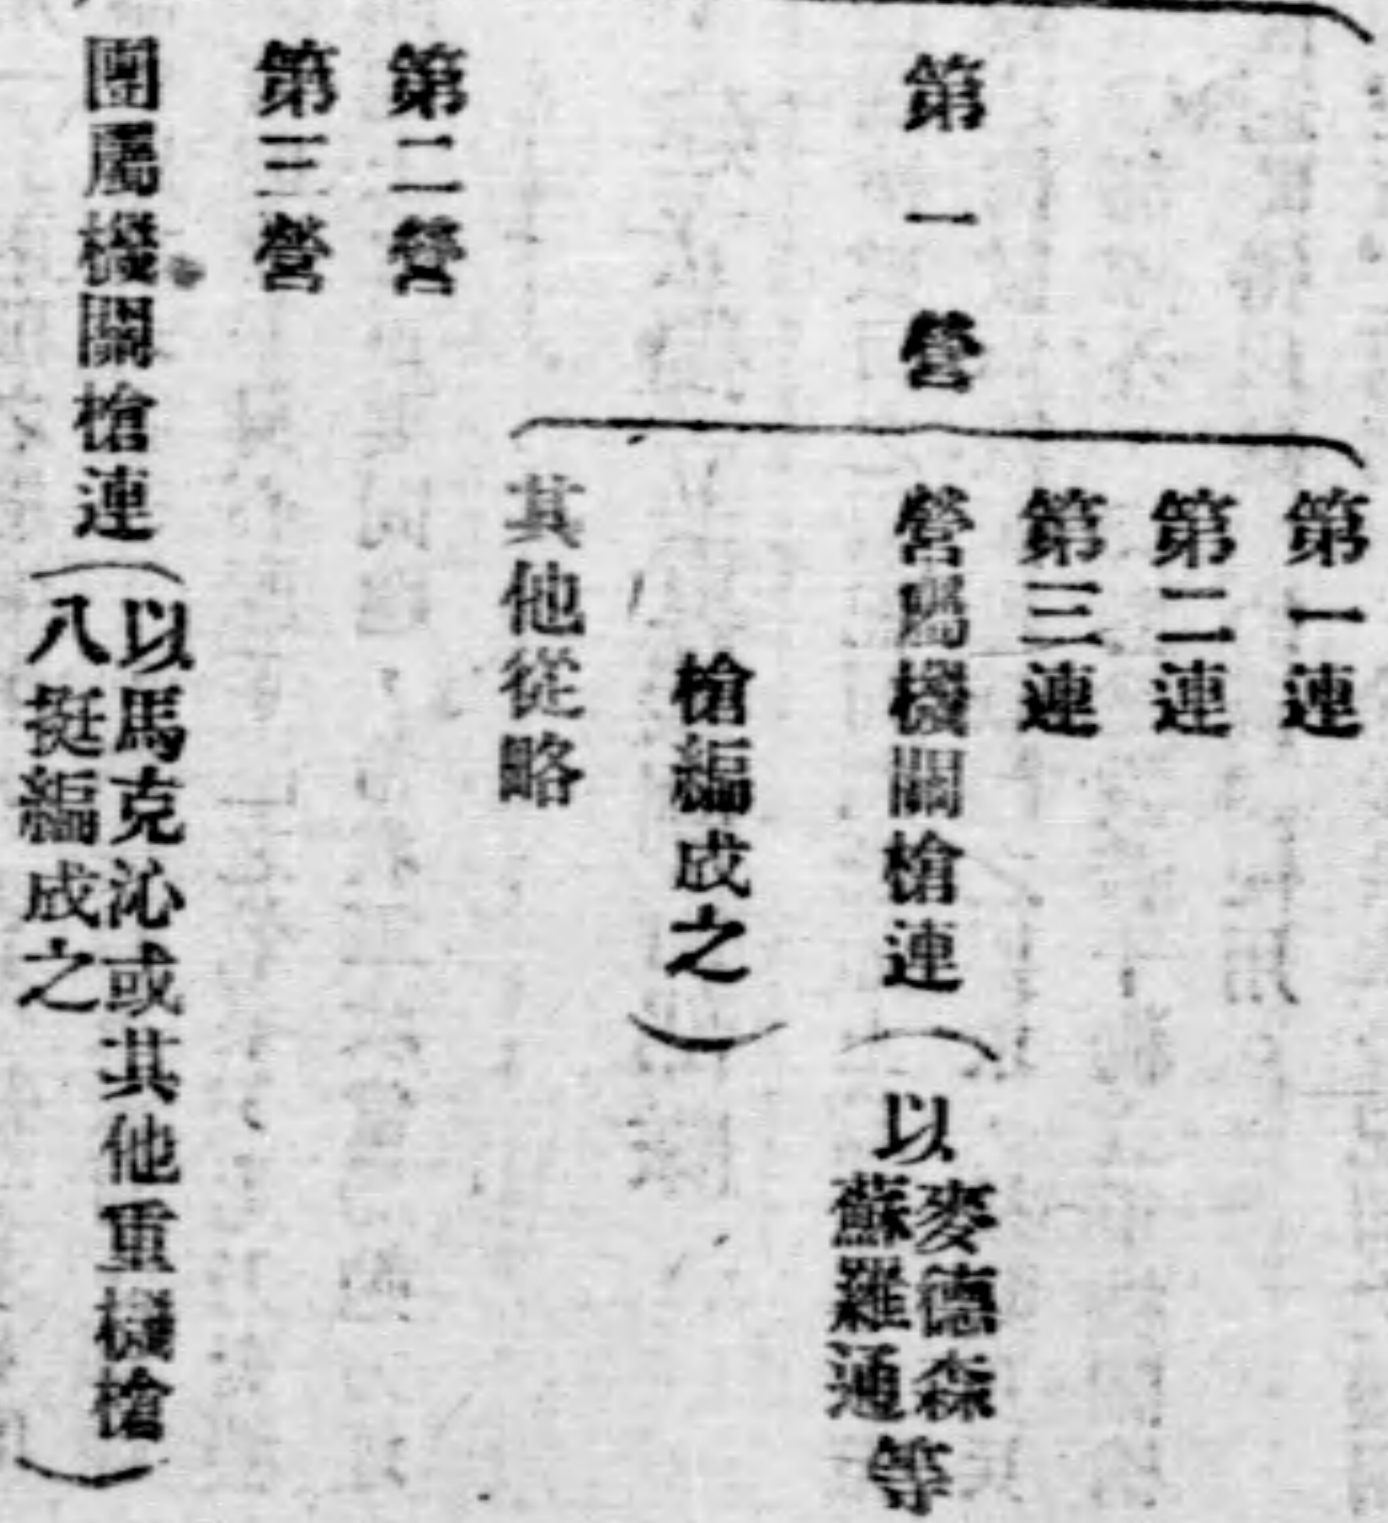 第一營
第一連
第二連
第三連
營屬機關槍連（以麥德森蘇羅通等
槍編成之）
其他從略
第二營
第三營
團屬機關槍連（以馬克沁或其他重機槍
八挺編成之）